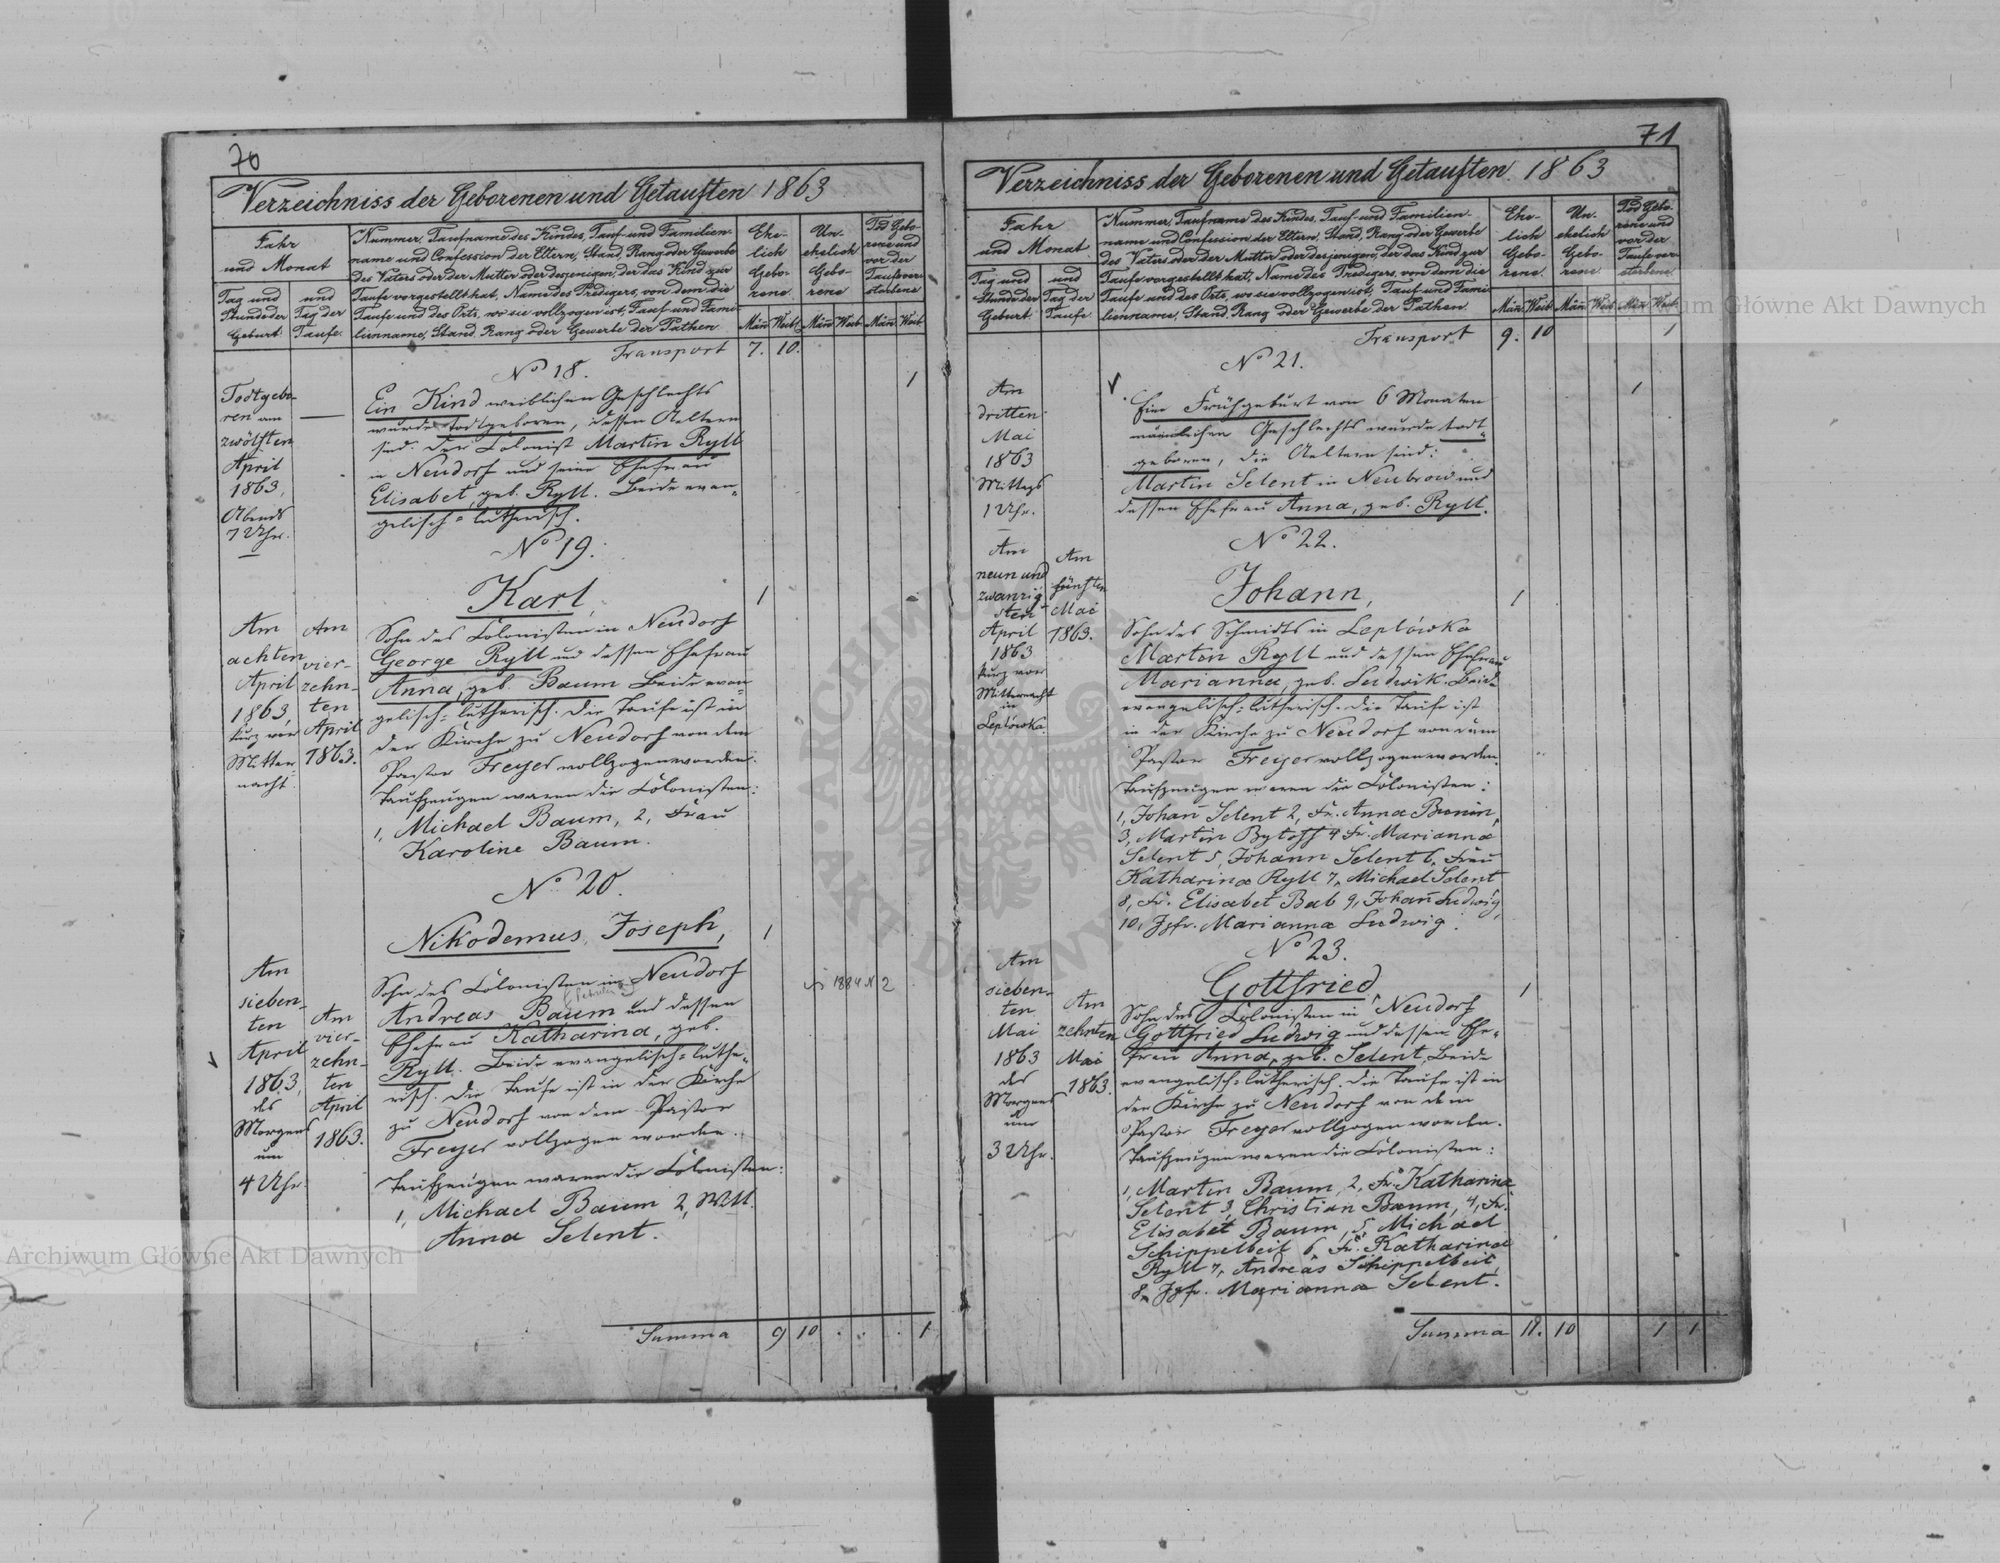 70
Verzeichniss der Geborenen und Getauften 1863
Jahr
und Monat
Tag und
Stunde der
Geburt.
und
Tag der
Taufe.
Nummer, Taufname des Kindes, Tauf- und Familien-
name und Confession der Eltern, Stand, Rang oder Gewerbe
des Vaters oder der Mutter oder desjenigen, der das Kind zur
Taufe vorgestellt hat, Name des Predigers, von dem die
Taufe und des Orts, wo sie vollzogen ist, Tauf- und Fami-
lienname, Stand, Rang oder Gewerbe der Pathen
Ehe-
lich
Gebo-
rene
Un-
ehelich
Gebo-
rene
Tod Gebo-
rene und
vor der
Taufe ver-
storbene
Män̄ Weib. Män̄ Weib Män̄ Weib
Transport 7. 10.
No 18.
Todtgebo-
ren am
zwölften
April
1863,
Abends
7 Uhr.
Ein Kind weiblichen Geschlechts 1
wurde todtgeboren, dessen Aeltern
sind: der Colonist Martin Ryll
in Neudorf und seine Ehefrau
Elisabet, geb. Ryll. Beide evan-
gelisch-lutherisch.
No 19.
Karl, 1
Am
achten
April
1863,
kurz vor
Mitter-
nacht.
Am
vier-
zehn-
ten
April
1863.
Sohn des Colonisten in Neudorf
George Ryll und dessen Ehefrau
Anna, geb. Baum Beide evan-
gelisch-lutherisch. Die Taufe ist in
der Kirche zu Neudorf von dem
Pastor Freyer vollzogen worden.
Taufzeugen waren die Colonisten:
1, Michael Baum, 2, Frau
Karoline Baum.
No 20.
Nikodemus Joseph, 1
Am
sieben-
ten
April
1863,
des
Morgens
um
4 Uhr.
Am
vier-
zehn-
ten
April
1863.
Sohn des Colonisten in Neudorf
1884 N 2
Andreas Baum und dessen
Ehefrau Katharina, geb.
Ryll. Beide evangelisch-luthe-
risch. Die Taufe ist in der Kirche
zu Neudorf von dem Pastor
Freyer vollzogen worden.
Taufzeugen waren die Colonisten:
1, Michael Baum 2,
Anna Selent.
Summa 9 10 . . . 1
71
Verzeichniss der Geborenen und Getauften 1863
Jahr
und Monat
Tag und
Stunde der
Geburt.
und
Tag der
Taufe
Nummer, Taufname des Kindes, Tauf- und Familien-
name und Confession der Eltern, Stand, Rang oder Gewerbe
des Vaters oder der Mutter oder desjenigen, der das Kind zur
Taufe vorgestellt hat, Name des Predigers, von dem die
Taufe und des Orts, wo sie vollzogen ist, Tauf- und Fami-
lienname, Stand, Rang oder Gewerbe der Pathen.
Ehe-
lich
Gebo-
rene.
Un-
ehelich
Gebo-
rene.
Tod Gebo-
rene und
vor der
Taufe ver-
storbene.
Män̄ Weib. Män̄ Weib. Män̄ Weib.
Transport 9. 10 1
No 21.
Am
dritten
Mai
1863
Mittags
1 Uhr.
Eine Frühgeburt von 6 Monaten 1
männlichen Geschlechts wurde todt
geboren, die Aeltern sind:
Martin Selent in Neubrow und
dessen Ehefrau Anna, geb. Ryll.
No 22.
Johann, 1
Am
neun und
zwanzig
sten
April
1863
kurz vor
Mitternacht
in
Leplówka.
Am
fünften
Mai
1863.
Sohn des Schmidts in Leplówka
Martin Ryll und dessen Ehefrau
Marianna, geb. Ludwik. Beide
evangelisch-lutherisch. Die Taufe ist
in der Kirche zu Neudorf von dem
Pastor Freyer vollzogen worden.
Taufzeugen waren die Colonisten:
1, Johan̄ Selent 2, Fr. Anna
3, Martin Bytoff 4 Fr. Marianna
Selent 5, Johann Selent 6, Frau
Katharina Ryll 7, Michael Selent
8, Fr. Elisabet Bab 9, Johan̄ Ludwig,
10, Jgfr. Marianna Ludwig.
No 23.
Gottfried, 1
Am
sieben-
ten
Mai
1863
des
Morgens
um
3 Uhr.
Am
zehnten
Mai
1863.
Sohn des Colonisten in Neudorf
Gottfried Ludwig und dessen Ehe-
frau Anna, geb. Selent, Beide
evangelisch-lutherisch. Die Taufe ist in
der Kirche zu Neudorf von dem
Pastor Freyer vollzogen worden.
Taufzeugen waren die Colonisten:
1, Martin Baum, 2, Fr. Katharina
Selent 3, Christian Baum, 4, Fr.
Elisabet Baum, 5, Michael
Schippelbeil 6, Fr. Katharina
Ryll 7, Andreas Schippelbeil,
8, Jgfr. Marianna Selent.
Summa 11. 10 1 1
Archiwum Główne Akt Dawnych
Archiwum Główne Akt Dawnych